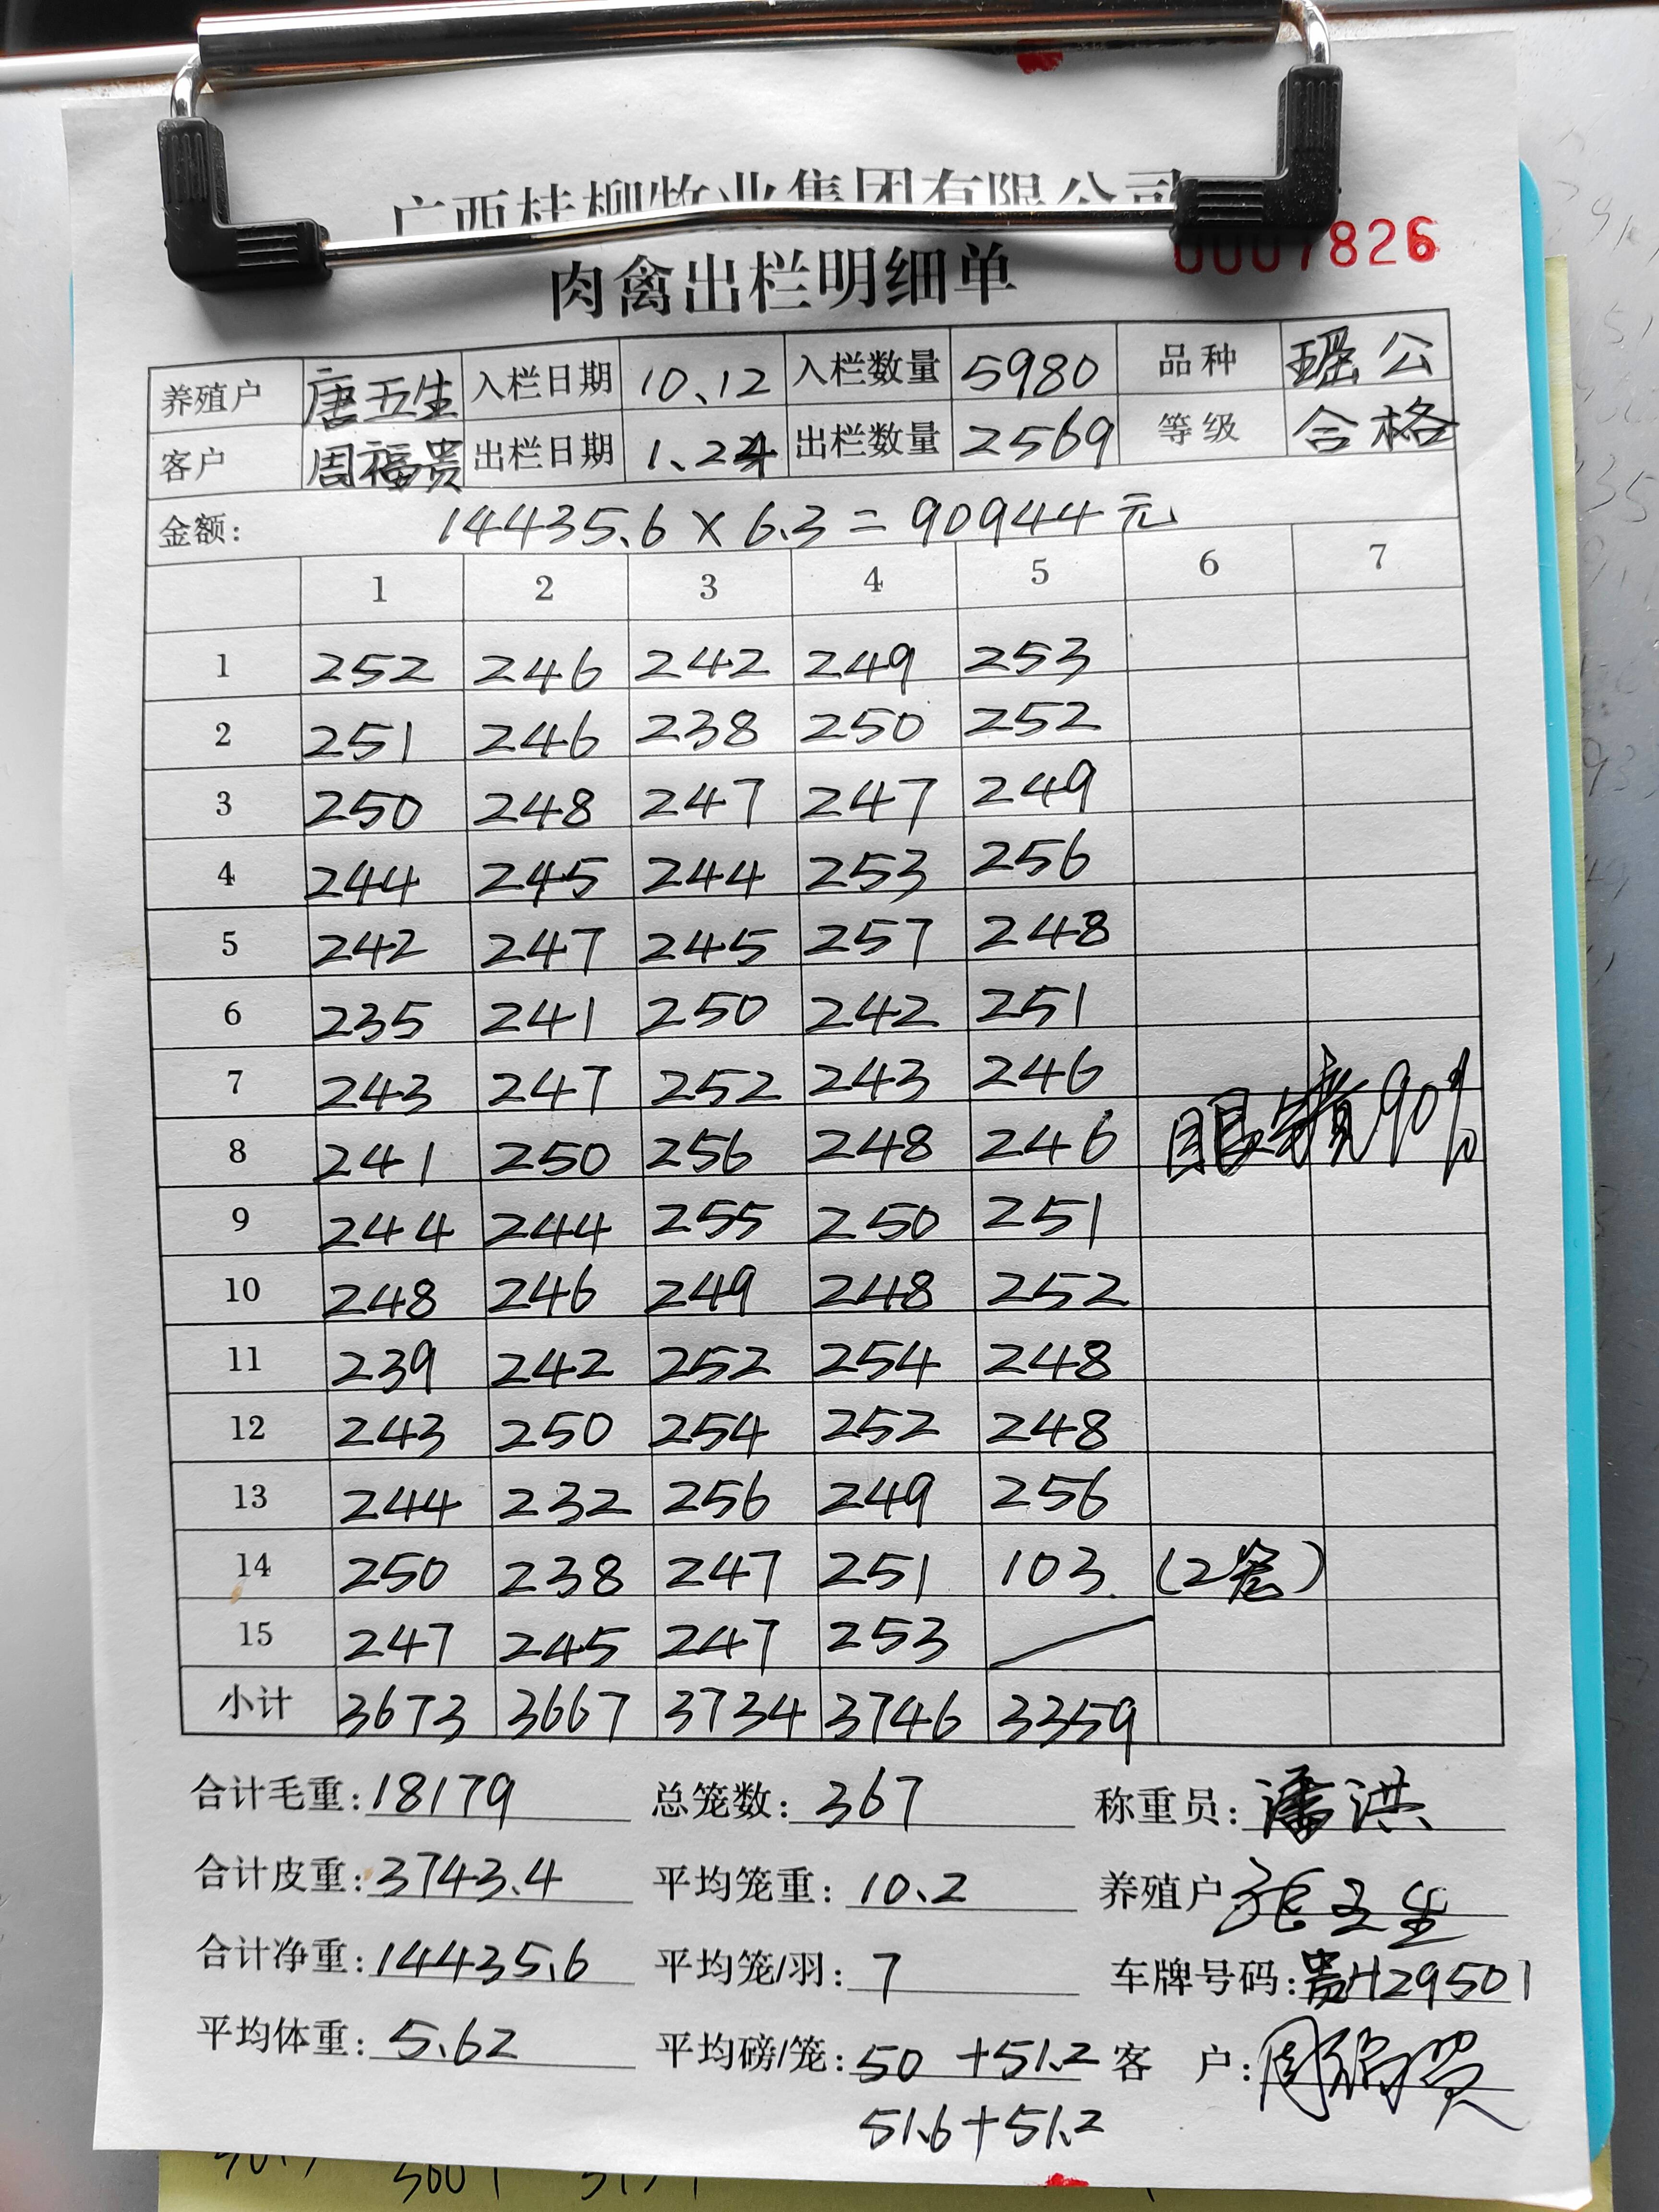 广西桂柳牧业集团有限公司
0007826
肉禽出栏明细单
养殖户 唐五生 入栏日期 10.12 入栏数量 5980 品种 瑶公
客户 周福贵 出栏日期 1.24 出栏数量 2569 等级 合格
金额: 14435.6 × 6.3 = 90944元
1 2 3 4 5 6 7
1 252 246 242 249 253
2 251 246 238 250 252
3 250 248 247 247 249
4 244 245 244 253 256
5 242 247 245 257 248
6 235 241 250 242 251
7 243 247 252 243 246
8 241 250 256 248 246 眼 90%
9 244 244 255 250 251
10 248 246 249 248 252
11 239 242 252 254 248
12 243 250 254 252 248
13 244 232 256 249 256
14 250 238 247 251 103 (2笼)
15 247 245 247 253
小计 3673 3667 3734 3746 3359
合计毛重: 18179 总笼数: 367 称重员: 潘洪
合计皮重: 3743.4 平均笼重: 10.2 养殖户
合计净重: 14435.6 平均笼/羽: 7 车牌号码: 贵H29501
平均体重: 5.62 平均磅/笼: 50 +51.2 客 户: 周福贵
51.6+51.2